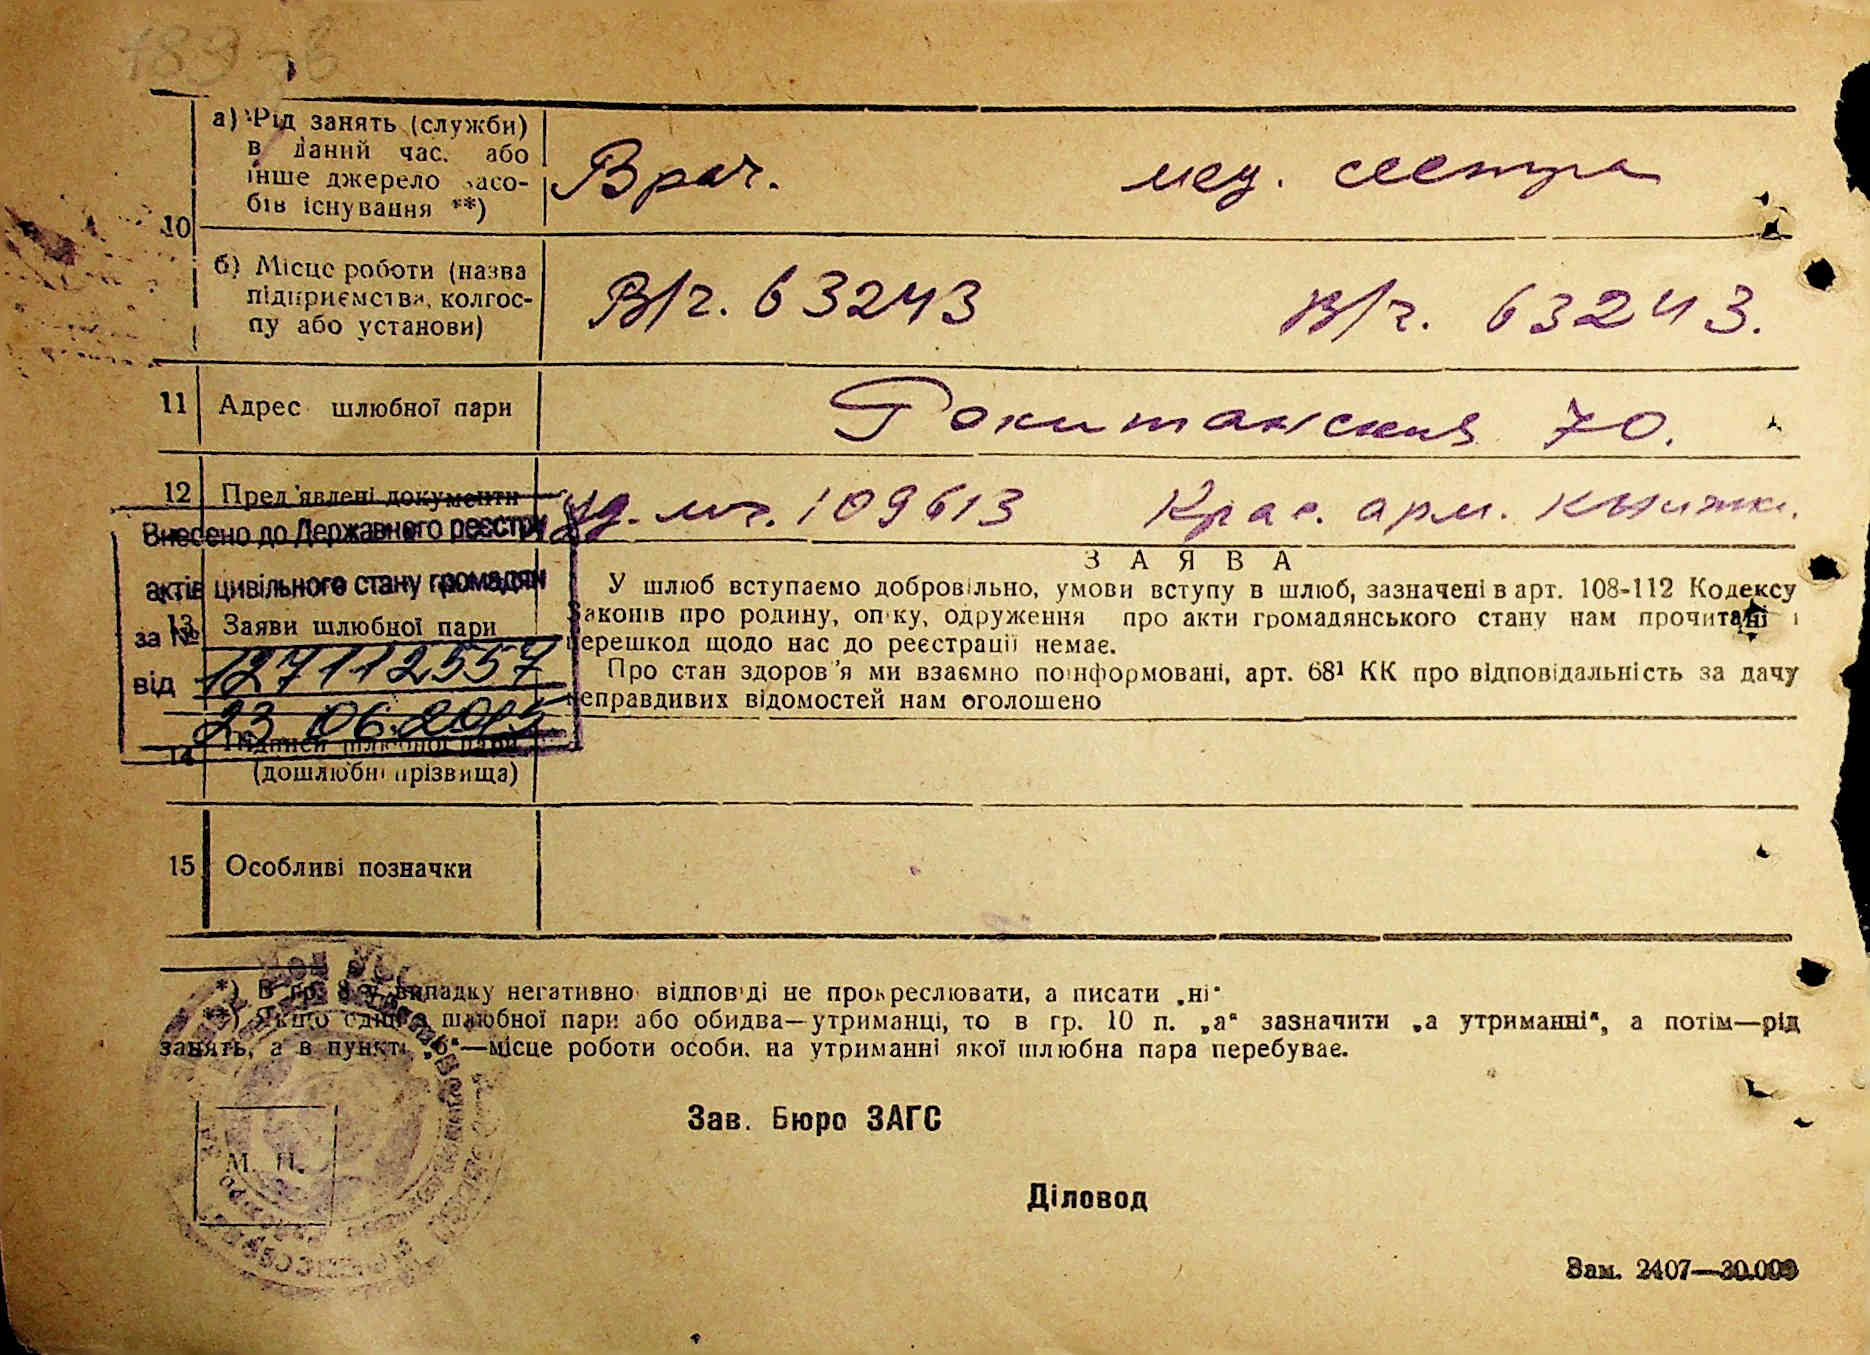 а) Рід занять (служби)
в даний час, або
інше джерело засо-
бів існування **)
Врач.
мед. сестра
10
б) Місце роботи (назва
підприємства, колгос-
пу або установи)
В/ч. 63243
В/ч. 63243.
11 Адрес шлюбної пари
70.
12 Пред'явлені документи
Уд. лич. 109613
Крас. арм. книжк.
Внесено до Державного реєстру
актів цивільного стану громадян
за №
127112557
від
23.06.2015
13 Заяви шлюбної пари
ЗАЯВА
У шлюб вступаємо добровільно, умови вступу в шлюб, зазначені в арт. 108-112 Кодексу
Законів про родину, опіку, одруження про акти громадянського стану нам прочитані і
перешкод щодо нас до реєстрації немає.
Про стан здоров'я ми взаємно поінформовані, арт. 68¹ КК про відповідальність за дачу
неправдивих відомостей нам оголошено
14 Підписи шлюбної пари
(дошлюбні прізвища)
15 Особливі позначки
*) В гр. 8 у випадку негативної відповіді не прокреслювати, а писати „ні"
**) Якщо один з шлюбної пари або обидва—утриманці, то в гр. 10 п. „а" зазначити „а утриманні", а потім—рід
занять, а в пункті „б"—місце роботи особи, на утриманні якої шлюбна пара перебуває.
Зав. Бюро ЗАГС
М. П.
Діловод
Зам. 2407—30.000